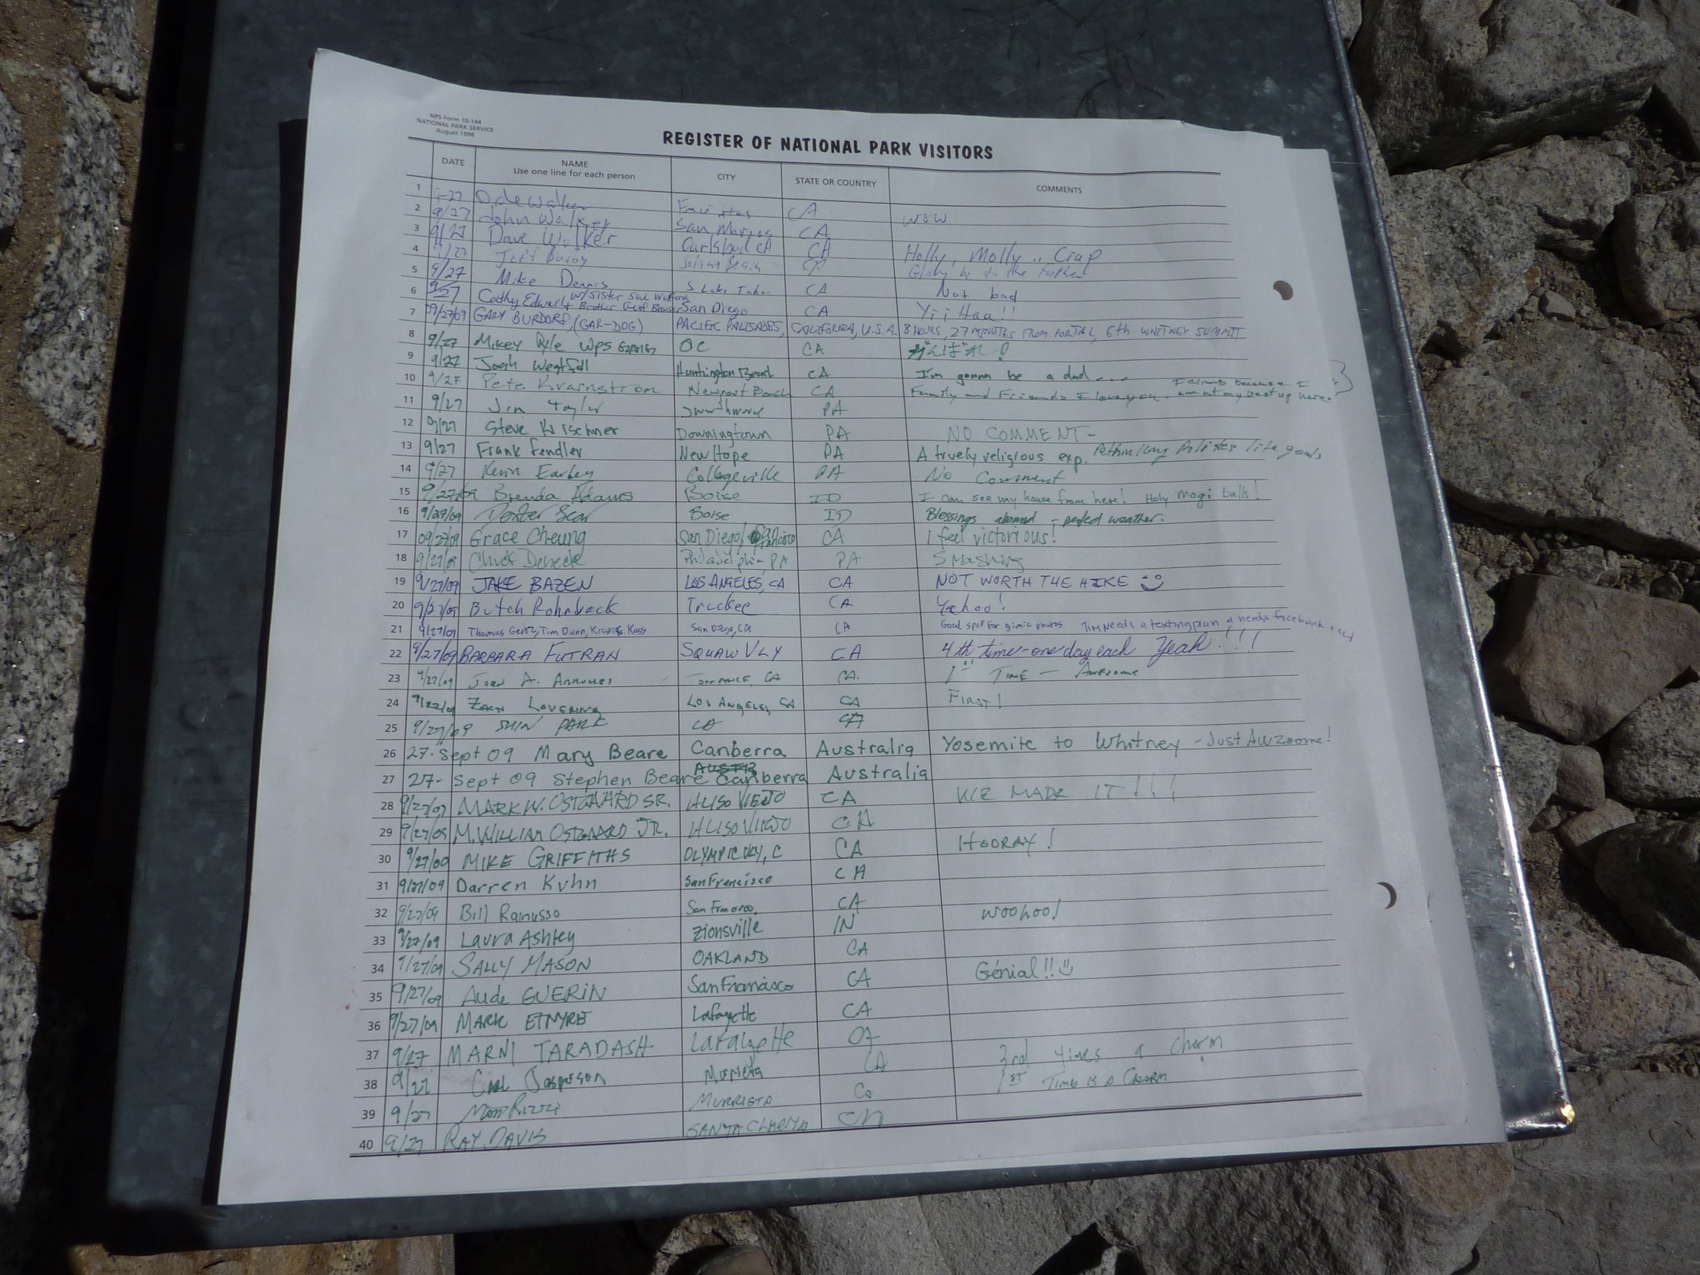 NPS Form 10-144
NATIONAL PARK SERVICE
August 1998
REGISTER OF NATIONAL PARK VISITORS
DATE NAME CITY STATE OR COUNTRY COMMENTS
Use one line for each person
1 CA
2 9/27 John Walker San Marcos CA WOW
3 9/27 Dave Walker Carlsbad, CA CA Holly, Molly .. Crap
4 CA
5 9/27 Mike Dennis S Lake CA Not bad
6 9/27 Cathy Edwards w/sister San Diego CA Yii Haa!!
7 09/27/09 GARY BURDORF, (GAR-DOG) PACIFIC PALISADES, CALIFORNIA, U.S.A. 8 HOURS, 27 MINUTES FROM PORTAL, 6th WHITNEY SUMMIT
8 9/27 Mikey OC CA がんばれ!
9 9/27 Josh Huntington Beach CA I'm gonna be a dad....
10 9/27 Pete Newport Beach CA Family and Friends I love you.
11 9/27 Jim Taylor PA
12 9/27 Steve Downingtown PA NO COMMENT-
13 9/27 Frank Fendler New Hope PA A truely religious exp.
14 9/27 Kevin Earley Collegeville PA No Comment
15 9/27/09 Brenda Adams Boise ID I can see my house from here!
16 9/27/09 Boise ID Blessings abound - perfect weather.
17 09/27/09 Grace Cheung San Diego/ CA I feel victorious!
18 9/27/09 Chuck Philadelphia PA PA Smashing
19 9/27/09 JAKE BAZEN LOS ANGELES, CA CA NOT WORTH THE HIKE
20 9/27/09 Butch Rohrback Truckee CA Yahoo!
21 9/27/09 San Diego, CA CA Tim needs a texting plan
22 9/27/09 BARBARA FUTRAN SQUAW VLY CA 4th time - one day each Yeah!!!
23 9/27/09 John A. TORRANCE, CA CA 1st TIME - Awesome
24 9/27/09 Zach Los Angeles, CA CA FIRST!
25 9/27/09 SHIN PARK CA CA
26 27-Sept 09 Mary Beare Canberra Australia Yosemite to Whitney - Just Awzoome!
27 27-Sept 09 Stephen Beare Canberra Australia
28 9/27/09 MARK W. OSTGAARD SR. ALISO VIEJO CA WE MADE IT!!!
29 9/27/09 M. WILLIAM OSTGAARD JR. ALISO VIEJO CA
30 9/27/09 MIKE GRIFFITHS OLYMPIC VLY, C CA HOORAY!
31 9/27/09 Darren Kuhn San Francisco CA
32 9/27/09 Bill San Francisco CA Woohoo!
33 9/27/09 Laura Ashley Zionsville IN
34 9/27/09 SALLY MASON OAKLAND CA
35 9/27/09 Aude GUERIN San Francisco CA Génial!!
36 9/27/09 MARK ETMYRE Lafayette CA
37 9/27 MARNI TARADASH Lafayette CA
38 9/27 Carl Jasperson Murrieta CA 3rd times a charm
39 9/27 Matt Rizzi MURRIETA CA 1ST TIME IS A CHARM
40 9/27 RAY DAVIS SANTA CLARITA CA